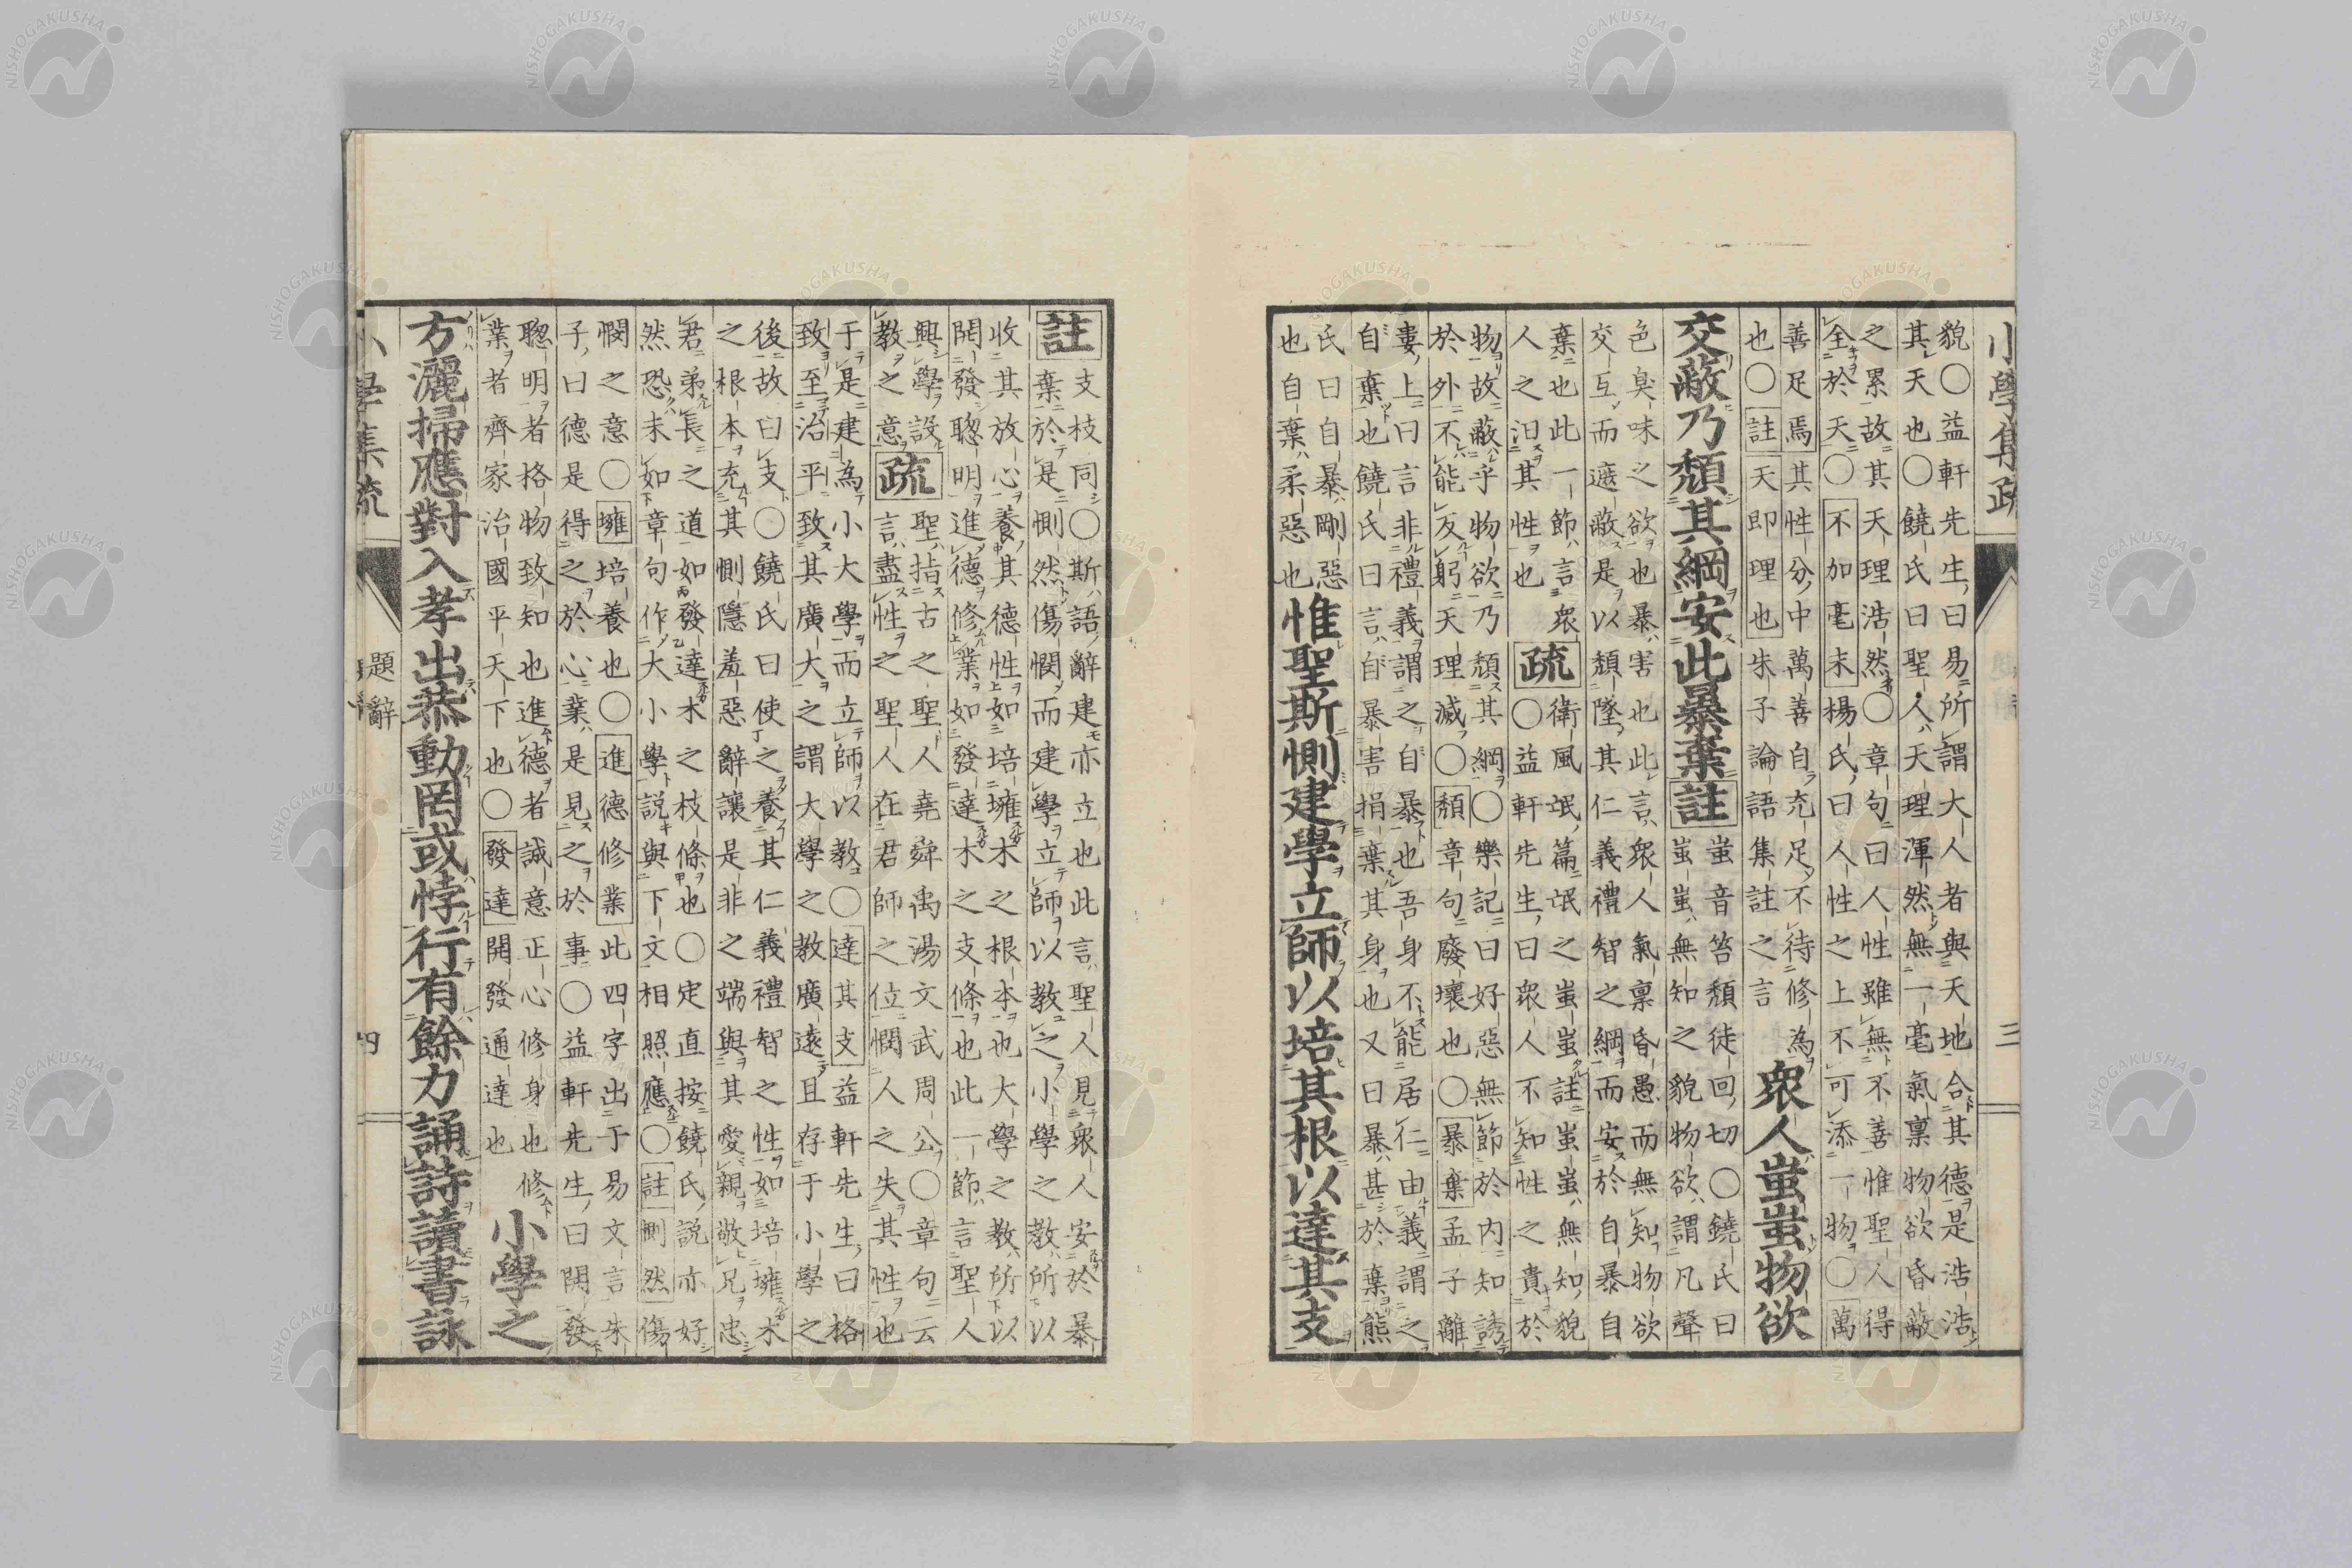 小學集疏　三
貌〇益軒先生曰易所謂大人者與天地合其德是浩浩
其天也〇饒氏曰聖人天理渾然無一毫氣稟物欲昏蔽
之累故其天理浩然〇章句曰人性雖無不善惟聖人得
全於天〇不加毫末楊氏曰人性之上不可添一物〇萬
善足焉其性分中萬善自充足不待修為
也〇註天即理也朱子論語集註之言
眾人蚩蚩物欲
交蔽乃頹其綱安此暴棄註
蚩音笞頹徒回切〇饒氏曰
蚩蚩無知之貌物欲謂凡聲
色臭味之欲也暴害也此言眾人氣稟昏愚而無知物欲
交互而遮蔽是以頹墜其仁義禮智之綱而安於自暴自
棄也此一節言眾
人之汩其性也
疏
衛風氓篇氓之蚩蚩註蚩蚩無知貌
〇益軒先生曰眾人不知性之貴於
物故蔽乎物欲乃頹其綱〇樂記曰好惡無節於內知誘
於外不能反躬天理滅〇頹章句廢壞也〇暴棄孟子離
婁上曰言非禮義謂之自暴也吾身不能居仁由義謂之
自棄也饒氏曰言自暴害捐棄其身也又曰暴甚於棄熊
氏曰自暴剛惡
也自棄柔惡也
惟聖斯惻建學立師以培其根以達其支
註
支枝同〇斯語辭建亦立也此言聖人見眾人安於暴
棄於是惻然傷憫而建學立師以教之小學之教所以
收其放心養其德性如培壅木之根本也大學之教所以
開發聰明進德修業如發達木之支條也此一節言聖人
興學設
教之意
疏
聖指古之聖人堯舜禹湯文武周公〇章句云
言盡性之聖人在君師之位憫人之失其性也
于是建為小大學而立師以教〇達其支益軒先生曰格
致至治平致其廣大之謂大學之教廣遠且存于小學之
後故曰支〇饒氏曰使之養其仁義禮智之性如培壅木
之根本充其惻隱羞惡辭讓是非之端與其愛親敬兄忠
君弟長之道如發達木之枝條也〇定直按饒氏說亦好
然恐未如章句作大小學說與下文相照應〇註惻然傷
憫之意〇壅培養也〇進德修業此四字出于易文言朱
子曰德是得之於心業是見之於事〇益軒先生曰開發
聰明者格物致知也進德者誠意正心修身也修
業者齊家治國平天下也〇發達開發通達也
小學之
方灑掃應對入孝出恭動罔或悖行有餘力誦詩讀書詠
小學集疏　題辭　四